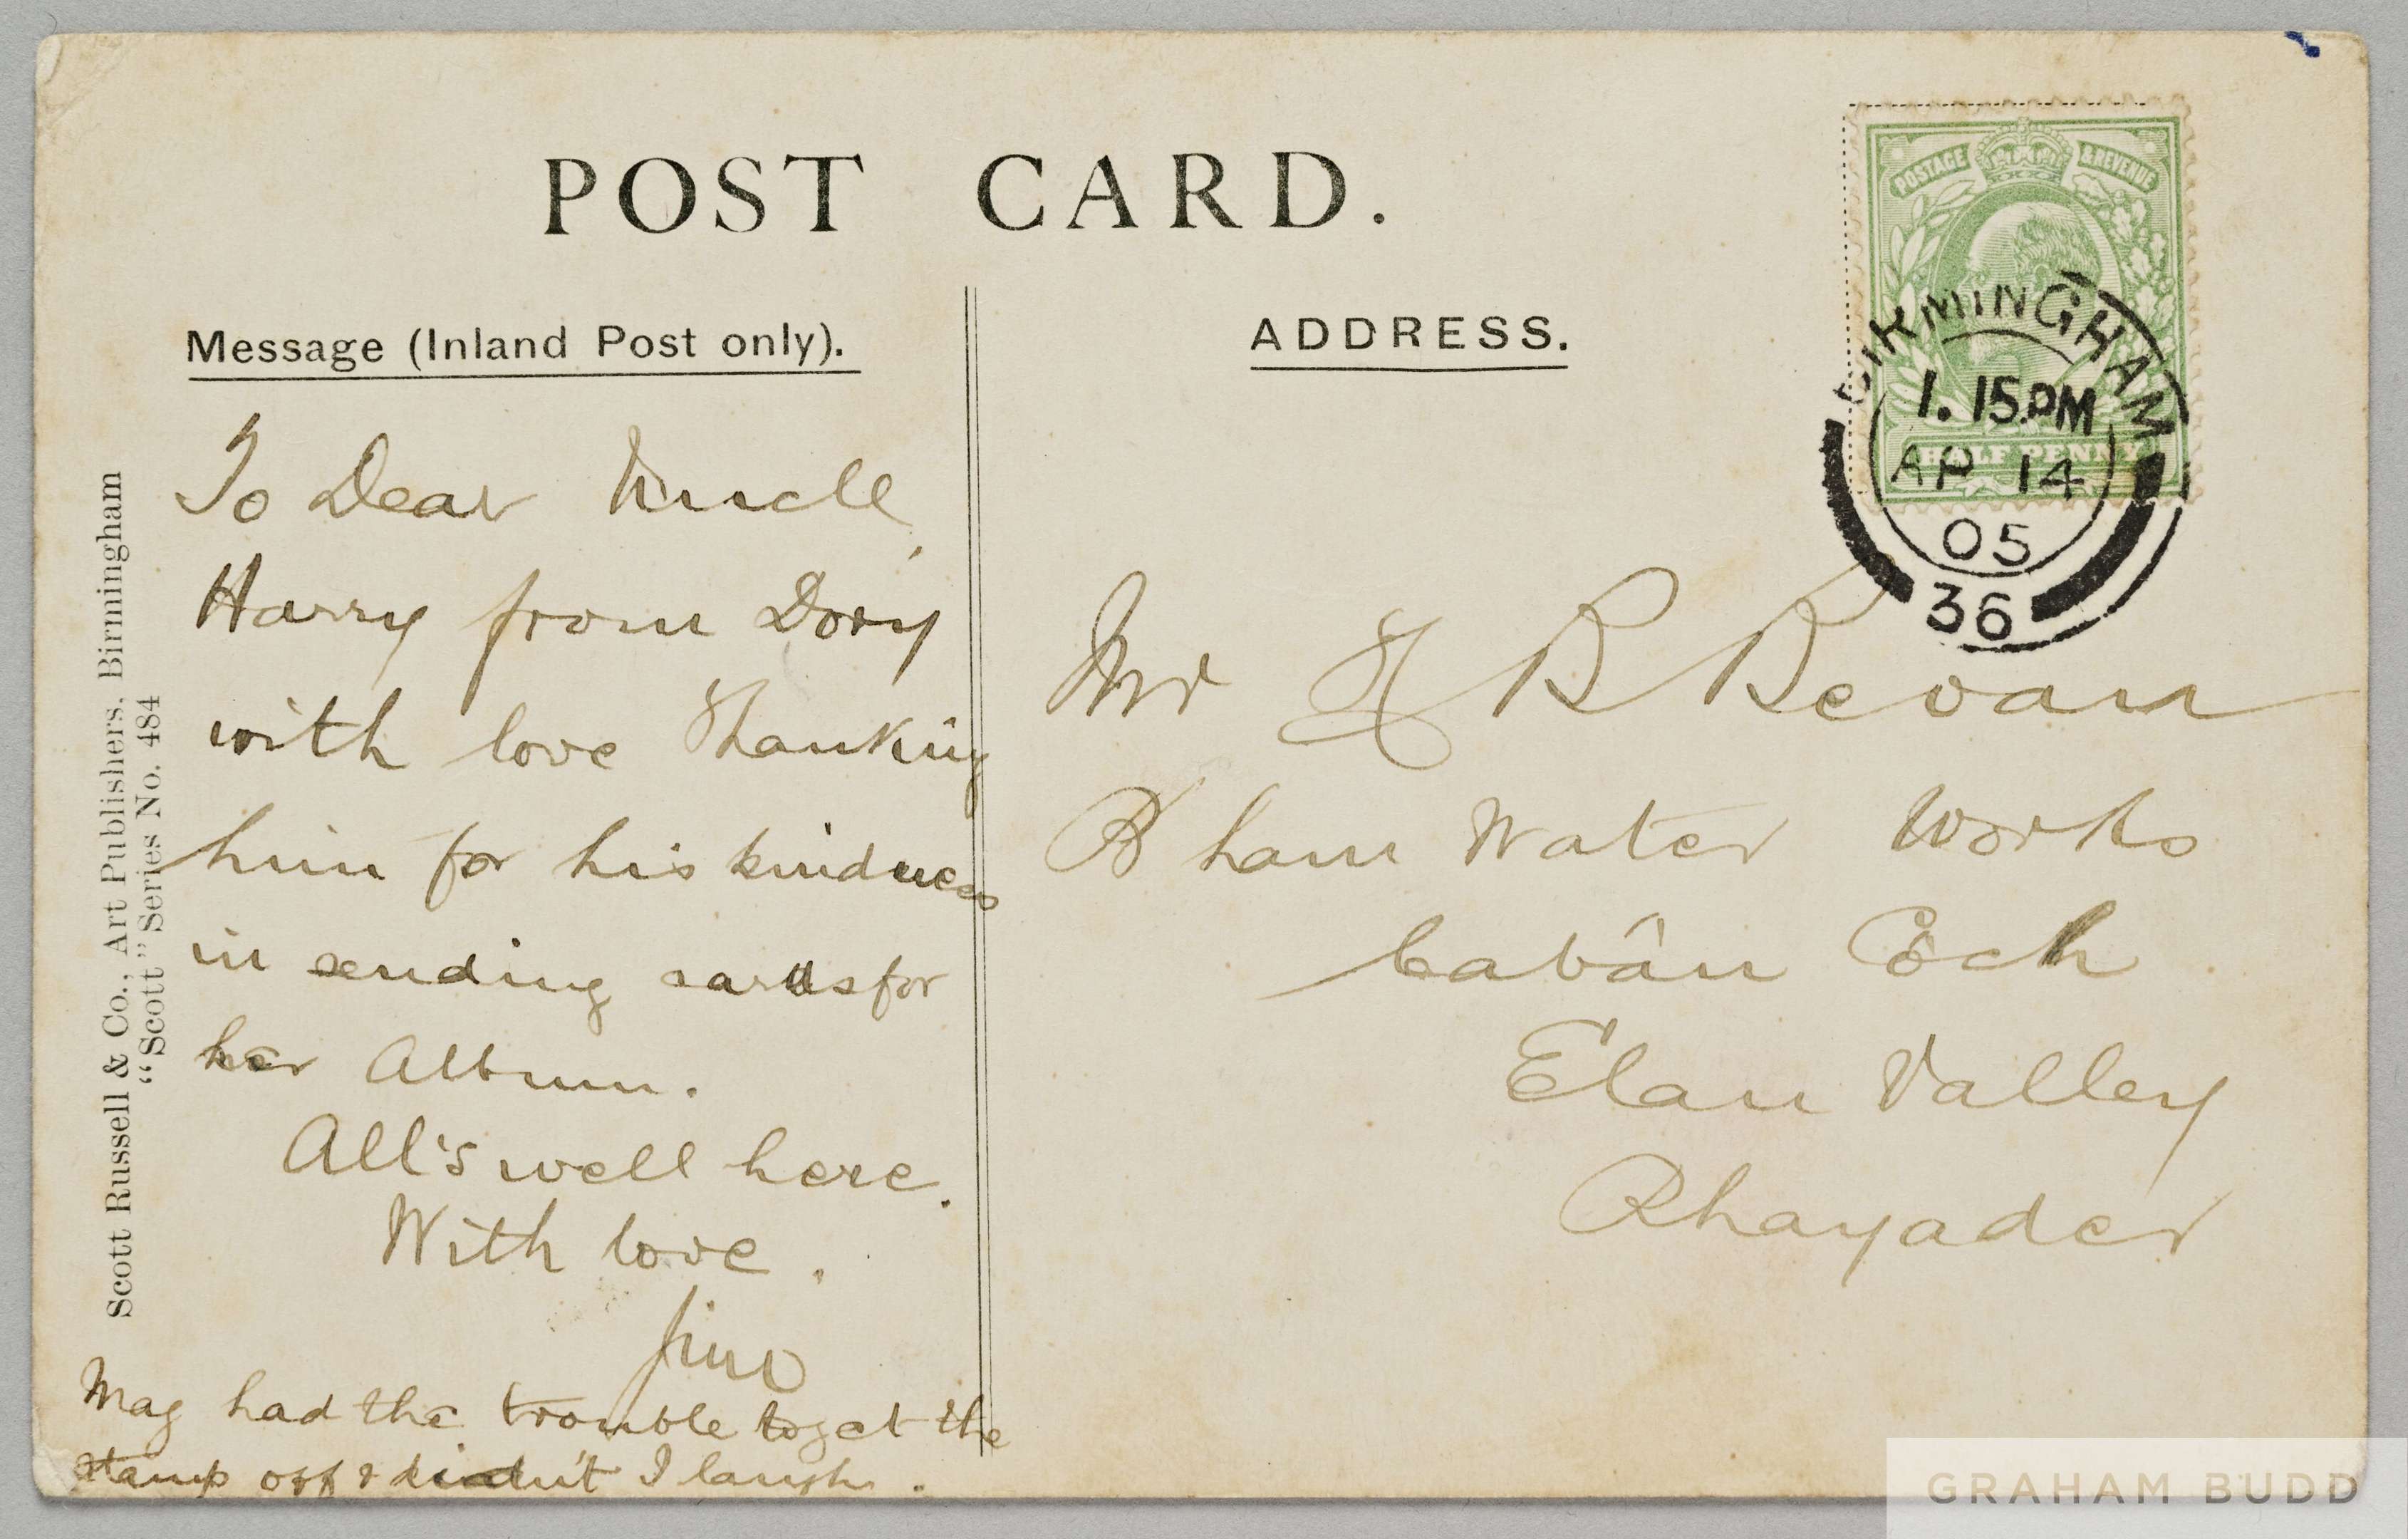 POST CARD.
Message (Inland Post only).
ADDRESS.
POSTAGE & REVENUE
HALF PENNY
BIRMINGHAM
1.15PM
AP 14
05
36
To Dear Uncle,
Harry from Dory
with love Thanking
him for his kindness
in sending cards for
her Album.
All's well here.
With love.
Jim
Mag had the trouble to get the
stamp off & didn't I laugh.
Mr H B Bevan
B'ham Water Works
Cabân Coch
Elan Valley
Rhayader
Scott Russell & Co., Art Publishers, Birmingham
"Scott" Series No. 484
GRAHAM BUDD